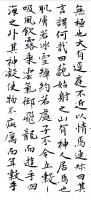 無極也大有逕庭不近人情焉連叔曰其
言謂何哉曰藐姑射之山有神人居焉
肌膚若冰雪綽約若處子不食五穀
吸風飲露乘雲氣御飛龍而遊乎四
海之外其神凝使物不疵癘而年穀